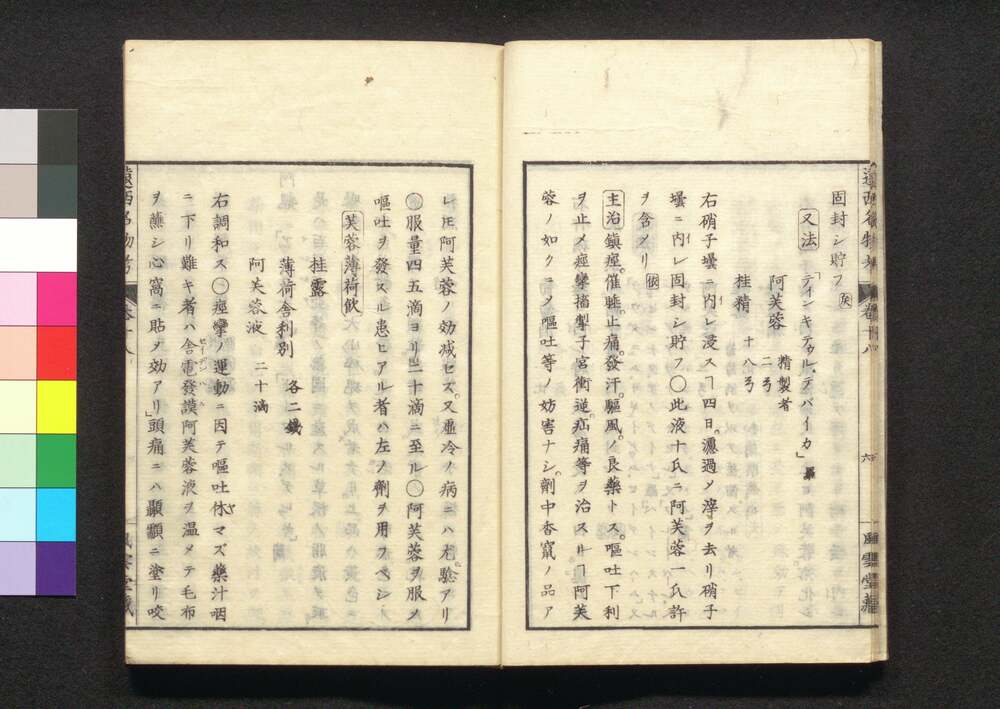 固封シ貯フ 矦
又法 「ティンキテゥル、テバイカ」 羅
阿芙蓉 精製者 二弓
桂精 十八弓
右硝子壜ニ内レ浸スヿ四日。濾過メ滓ヲ去リ硝子
壜ニ内レ固封シ貯フ〇此液十氏ニ阿芙蓉一氏許
ヲ含メリ 矦
主治 鎮痙。催睡。止痛。發汗。驅風。ノ良藥トス。嘔吐下利
ヲ止メ痙攣搐掣子宮衝逆。疝痛等ヲ治スルヿ阿芙
蓉ノ如クニメ嘔吐等ノ妨害ナシ。劑中杏竄ノ品ア
遠西名物考 巻十八 六 風雲堂藏
レ𪜈阿芙蓉ノ効減セズ。又虚冷ノ病ニハ尤驗アリ
〇服量四五滴ヨリ二十滴ニ至ル〇阿芙蓉ヲ服メ
嘔吐ヲ發スル患ヒアル者ハ左ノ劑ヲ用フベシ
芙蓉薄荷飲
桂露
薄荷舎利別 各二錢
阿芙蓉液 二十滴
右調和ス〇痙攣ノ運動ニ因テ嘔吐休マズ藥汁咽
ニ下リ難キ者ハ含電發謨阿芙蓉液ヲ温メテ毛布
ヲ蘸シ心窩ニ貼メ効アリ」頭痛ニハ顳顬ニ塗リ咬